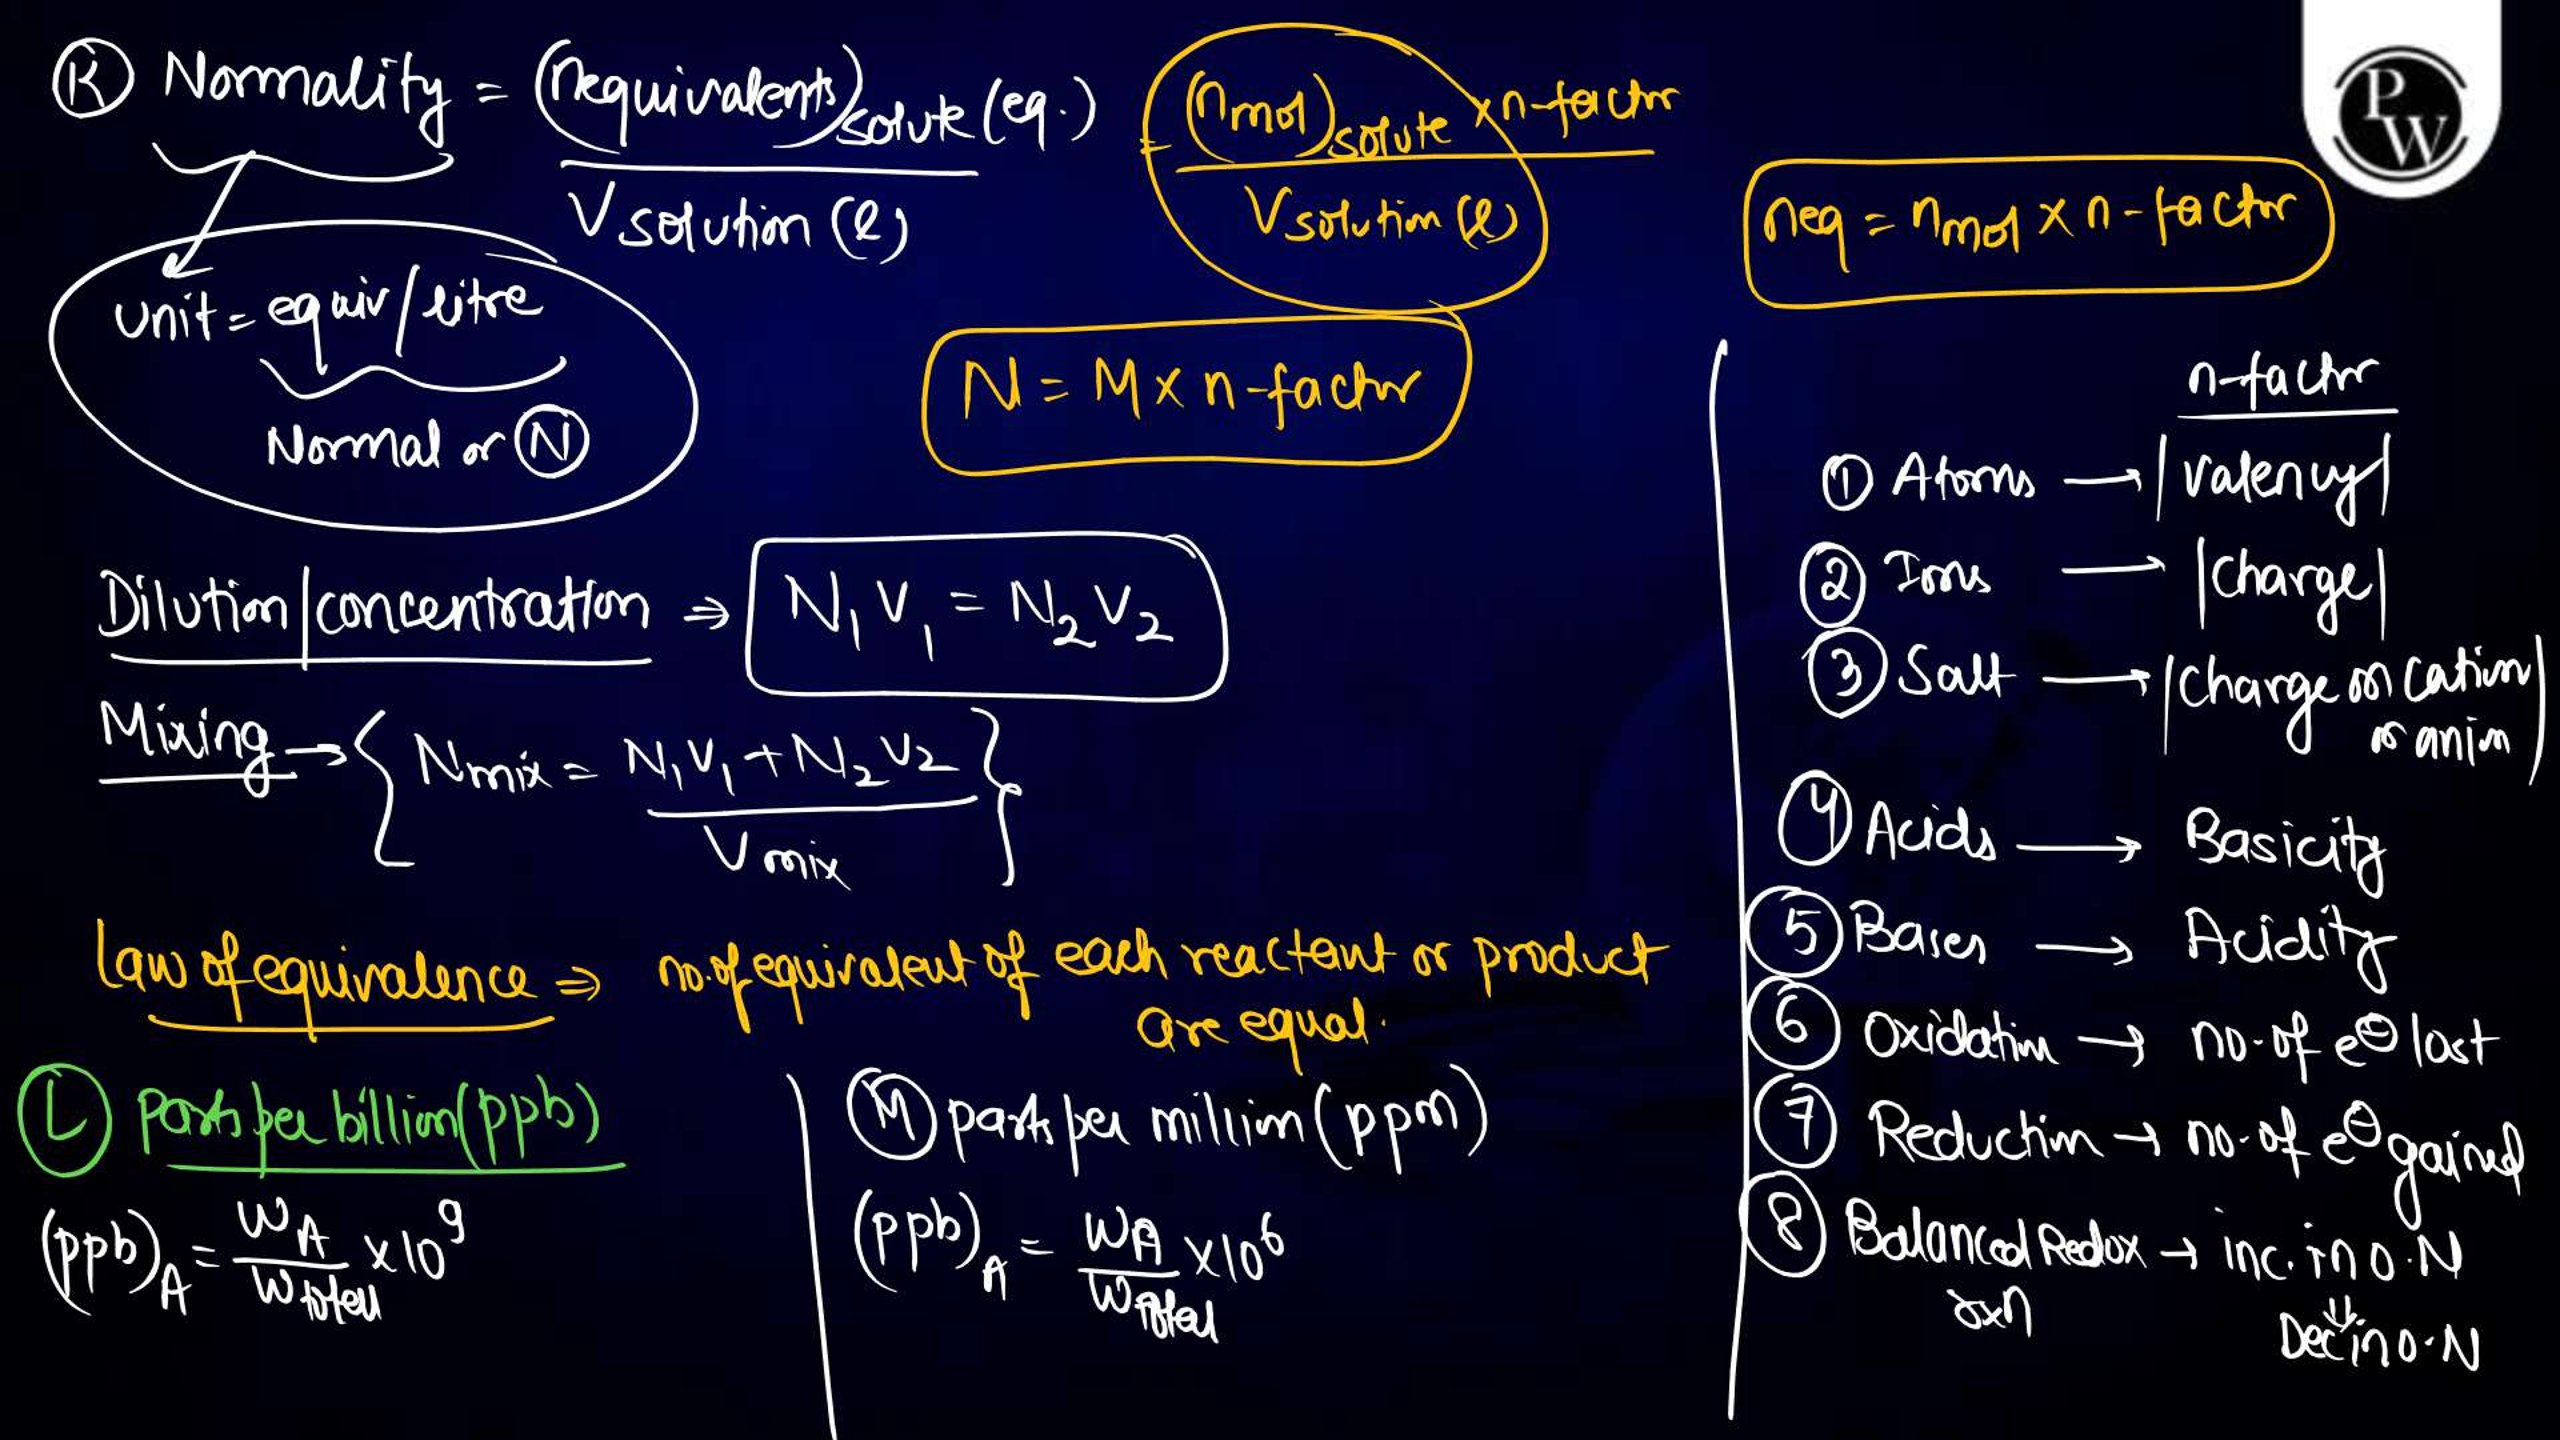 K Normality = (nequivalents)solute (eq.) / Vsolution (l) = (nmol)solute × n-factor / Vsolution (l)
PW
neq = nmol × n-factor
Unit = equiv/litre
Normal or N
N = M × n-factor
Dilution/concentration ⇒ N₁V₁ = N₂V₂
Mixing → { Nmix = N₁V₁ + N₂V₂ / Vmix }
Law of equivalence ⇒ no. of equivalent of each reactant or product
are equal.
L parts per billion (ppb)
(ppb)A = WA / Wtotal × 10⁹
M parts per million (ppm)
(ppb)A = WA / Wtotal × 10⁶
n-factor
① Atoms → |valency|
② Ions → |charge|
③ Salt → |charge on cation
or anion|
④ Acids → Basicity
⑤ Bases → Acidity
⑥ Oxidation → no. of e⊖ lost
⑦ Reduction → no. of e⊖ gained
⑧ Balanced Redox → inc. in O.N
rxn ⇓
Dec in O.N